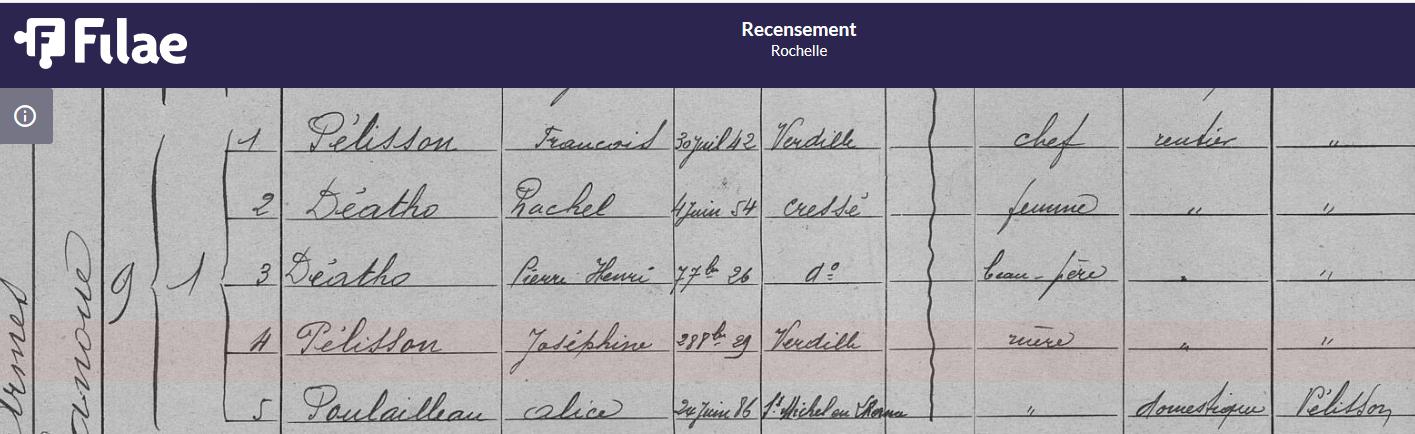 Filae
Recensement
Rochelle
1 Pélisson François 30 juil 42 Verdille chef rentier "
2 Déatho Rachel 4 juin 54 Cressé femme " "
9 1
3 Déatho Pierre Henri 7 7bre 26 do beau-père " "
4 Pélisson Joséphine 28 8bre 29 Verdille mère " "
5 Poulailleau alice 24 juin 86 St Michel en domestique Pélisson